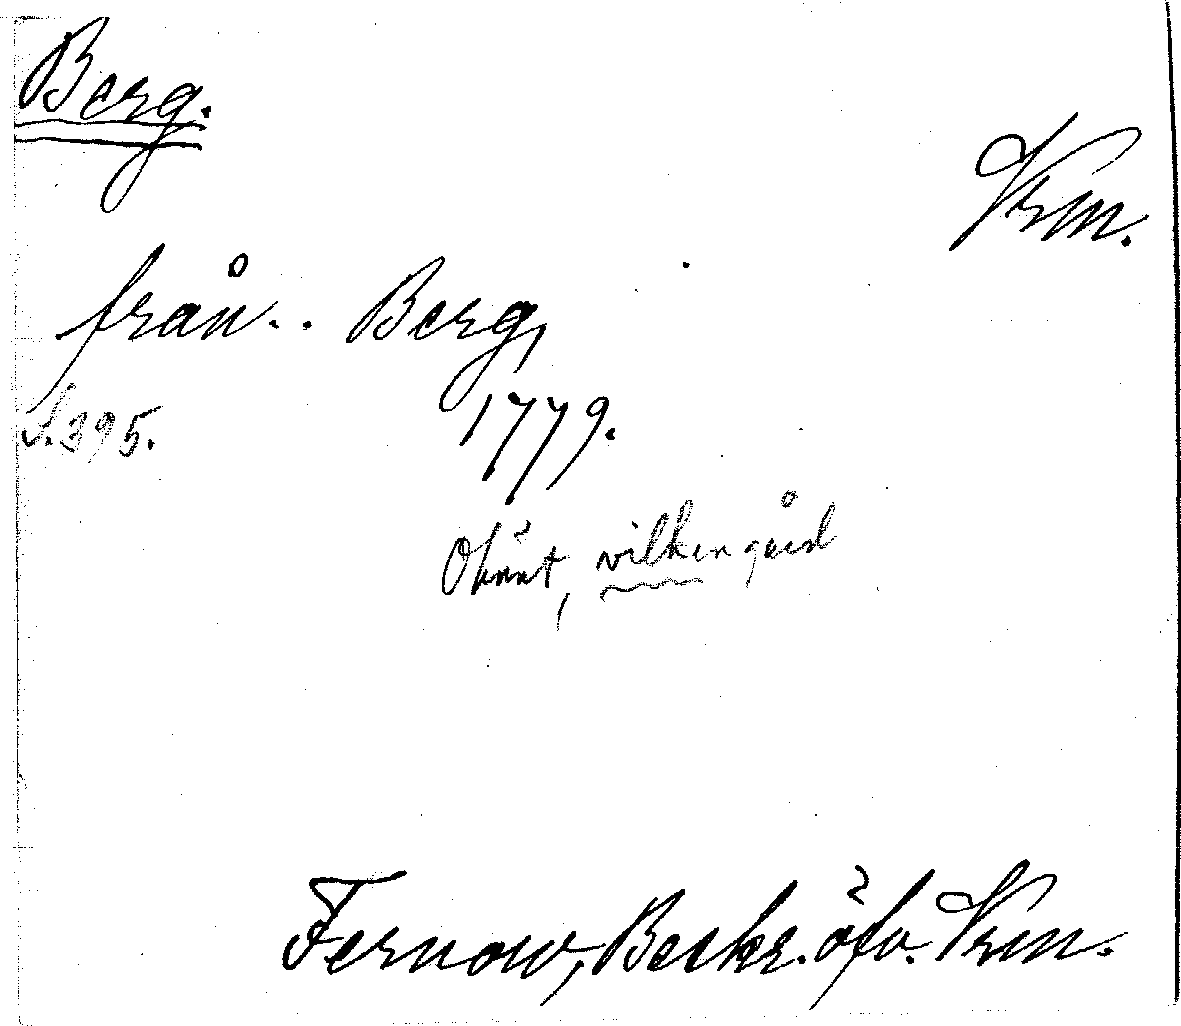 Berg.
Vrm.
från.. Berg,
1779.
S. 395.
Okänt, vilken gård
Fernow, Beskr. öfv. Vrm.